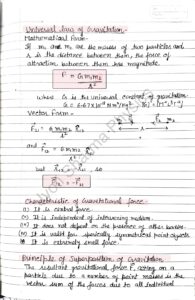 Universal Law of Gravitation-
Mathematical Form-
If m₁ and m₂ are the masses of two particles and
r is the distance between them, the force of
attraction between them has magnitude.
F = G m₁ m₂ / r²
where G is the universal constant of gravitation.
G = 6.67×10⁻¹¹ Nm²/kg² [G] = [M⁻¹L³T⁻²]
Vector Form-
F₁₂ = G m₁ m₂ / r²
and F₂₁ = G m₁ m₂ / r²
but so
F₁₂ = - F₂₁
Characteristic of Gravitational force
(i) It is central force.
(ii) It is independent of intervening medium.
(iii) It does not depend on the presence of other bodies.
(iv) It is valid for spherically symmetrical point objects
It is extremely small force.
Principle of Superposition of Gravitation
The resultant gravitational force F, acting on a
particle due to a number of point masses is the
vector sum of the forces due to all individual